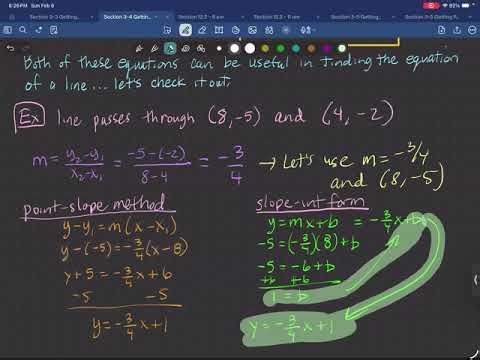 8:26 PM Sun Feb 6
92%
Section 3-3 Getting...
Section 3-4 Gettin...
Section 12.3 - 6 am
Section 12.3 - 6 am
Section 3-5 Getting...
Section 3-5 Getting F...
Both of these equations can be useful in finding the equation
of a line... let's check it out.
Ex line passes through (8,-5) and (4,-2)
m = y₂-y₁/x₂-x₁ = -5-(-2)/8-4 = -3/4 → Let's use m=-3/4
and (8,-5)
point-slope method
y-y₁=m(x-x₁)
y-(-5)=-3/4(x-8)
y+5=-3/4x+6
-5 -5
y=-3/4x+1
slope-int form
y=mx+b = -3/4x+b
-5=(-3/4)(8)+b
-5=-6+b
+6 +6
1=b
y=-3/4x+1